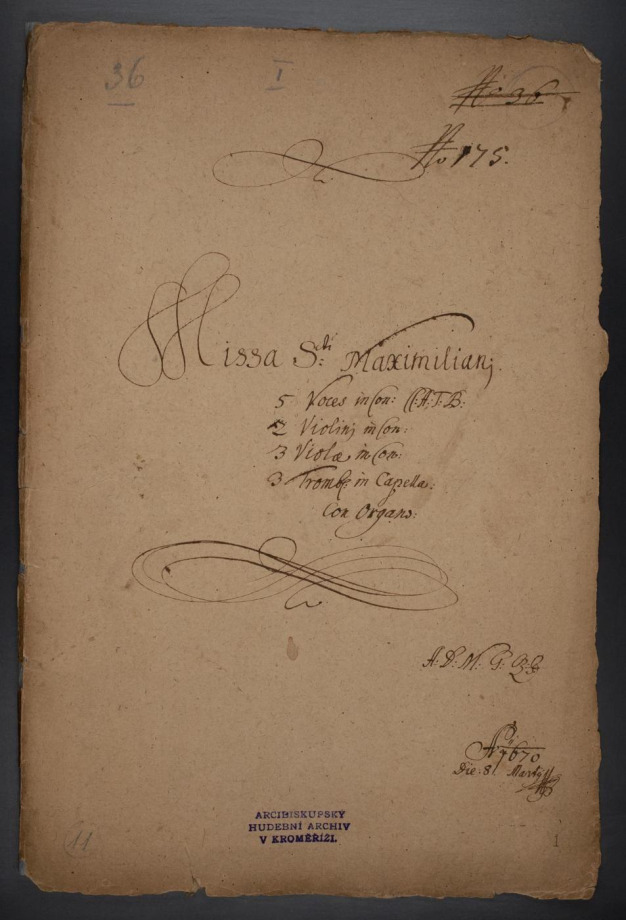 36
I
No 36
No 175.
Missa S:ti Maximiliani
5 Voces in Con: CC:A:T:B:
2 Violini in Con:
3 Violæ in Con:
3 Tromb: in Capella:
Con Organo:
A: D: M: G:
Ao 1670
Die: 8 Martij
ARCIBISKUPSKÝ
HUDEBNÍ ARCHIV
V KROMĚŘÍŽI.
11
1